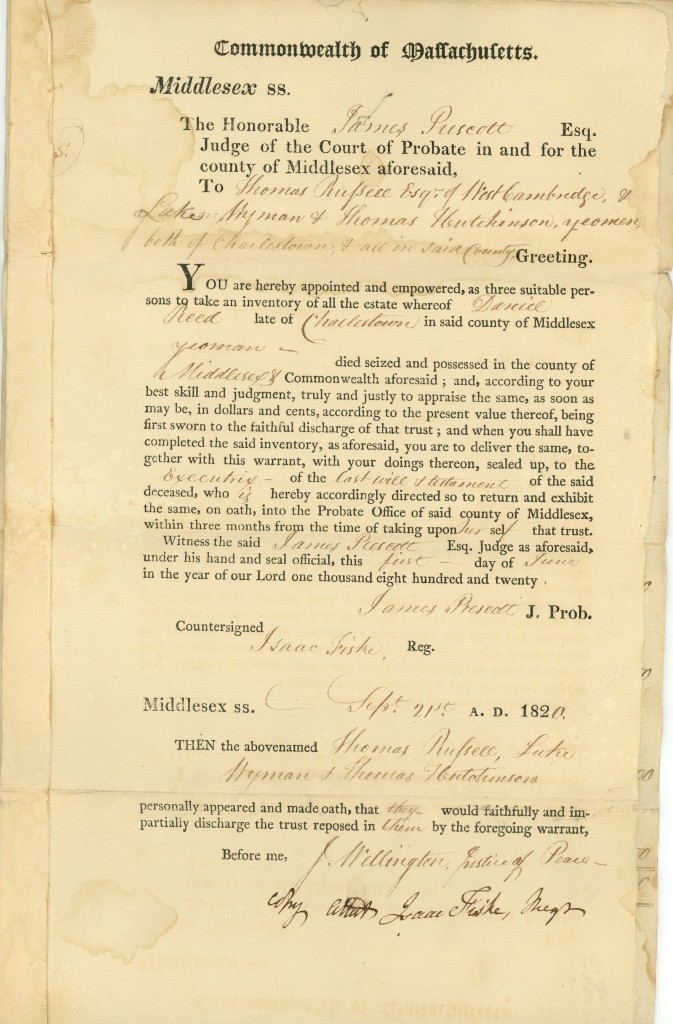 Commonwealth of Maſſachuſetts.
Middlesex ss.
The Honorable James Prescott Esq.
Judge of the Court of Probate in and for the
county of Middlesex aforesaid,
To Thomas Ruſsell Esqr. of West Cambridge, &
Luke Wyman & Thomas Hutchinson, yeomen,
both of Charlestown, & all in said County, Greeting.
YOU are hereby appointed and empowered, as three suitable per-
sons to take an inventory of all the estate whereof Daniel
Reed late of Charlestown in said county of Middlesex
yeoman –
died seized and possessed in the county of
Middlesex & Commonwealth aforesaid ; and, according to your
best skill and judgment, truly and justly to appraise the same, as soon as
may be, in dollars and cents, according to the present value thereof, being
first sworn to the faithful discharge of that trust ; and when you shall have
completed the said inventory, as aforesaid, you are to deliver the same, to-
gether with this warrant, with your doings thereon, sealed up, to the
Executrix – of the last will & testament of the said
deceased, who is hereby accordingly directed so to return and exhibit
the same, on oath, into the Probate Office of said county of Middlesex,
within three months from the time of taking upon her self that trust.
Witness the said James Prescott Esq. Judge as aforesaid,
under his hand and seal official, this first – day of June
in the year of our Lord one thousand eight hundred and twenty .
James Prescott J. Prob.
Countersigned
Isaac Fiske, Reg.
Middlesex ss. Sept. 21st. A. D. 1820.
THEN the abovenamed Thomas Ruſsell, Luke
Wyman & Thomas Hutchinson
personally appeared and made oath, that they would faithfully and im-
partially discharge the trust reposed in them by the foregoing warrant,
Before me, J. Wellington, Justice of Peace –
Copy Attest Isaac Fiske, Regr